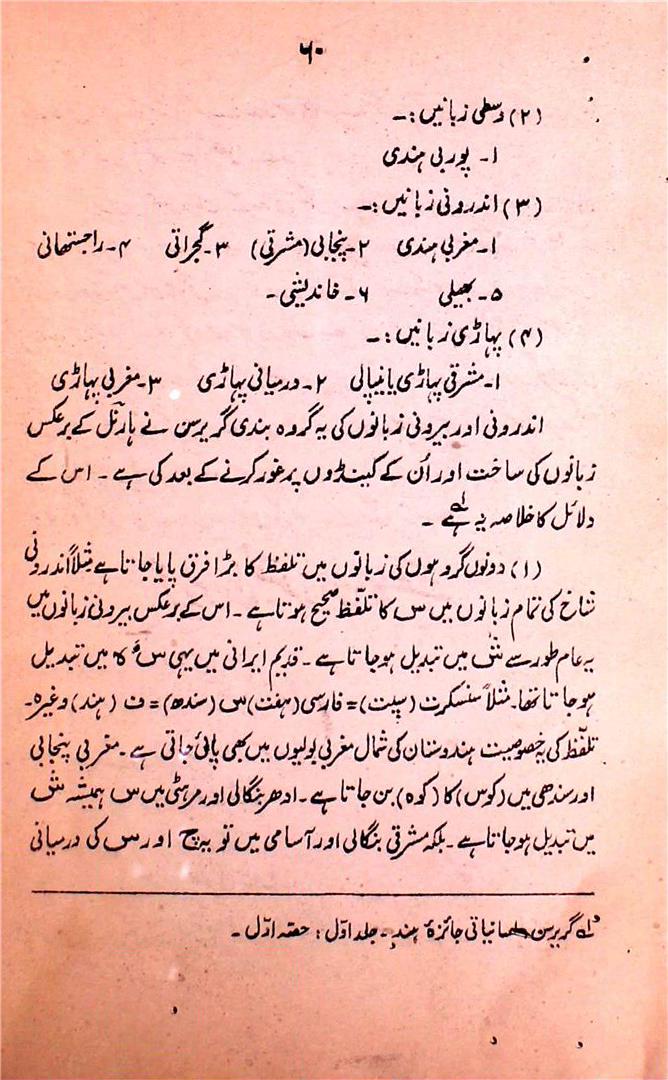 ۶۰
(۲) وسطی زبانیں:۔
۱۔ پوربی ہندی
(۳) اندرونی زبانیں:۔
۱۔ مغربی ہندی ۲۔ پنجابی (مشرقی) ۳۔ گجراتی ۴۔ راجستھانی
۵۔ بھیلی ۶۔ خاندیشی۔
(۴) پہاڑی زبانیں:۔
۱۔ مشرقی پہاڑی یا نیپالی ۲۔ درمیانی پہاڑی ۳۔ مغربی پہاڑی
اندرونی اور بیرونی زبانوں کی یہ گروہ بندی گریرسن نے ہارنل کے برعکس
زبانوں کی ساخت اور اُن کے کینڈوں پر غور کرنے کے بعد کی ہے۔ اس کے
دلائل کا خلاصہ یہ ہے۔
(۱) دونوں گروہوں کی زبانوں میں تلفظ کا بڑا فرق پایا جاتا ہے مثلاً اندرونی
شاخ کی تمام زبانوں میں س کا تلفّظ صحیح ہوتا ہے۔ اس کے برعکس بیرونی زبانوں میں
یہ عام طور سے ش میں تبدیل ہو جاتا ہے۔ قدیم ایرانی میں یہی س ہ میں تبدیل
ہو جاتا تھا۔ مثلاً سنسکرت (سپت) = فارسی (ہفت) س (سندھ) = ف (ہند) وغیرہ۔
تلفّظ کی یہ خصوصیت ہندوستان کی شمال مغربی بولیوں میں بھی پائی جاتی ہے۔ مغربی پنجابی
اور سندھی میں (کوس) کا (کوہ) بن جاتا ہے۔ ادھر بنگالی اور مرہٹی میں س ہمیشہ ش
میں تبدیل ہو جاتا ہے۔ بلکہ مشرقی بنگالی اور آسامی میں تو یہ چ اور س کی درمیانی
گریرسن نیاتی جائزۂ ہند۔ جلد اوّل: حصّہ اوّل۔